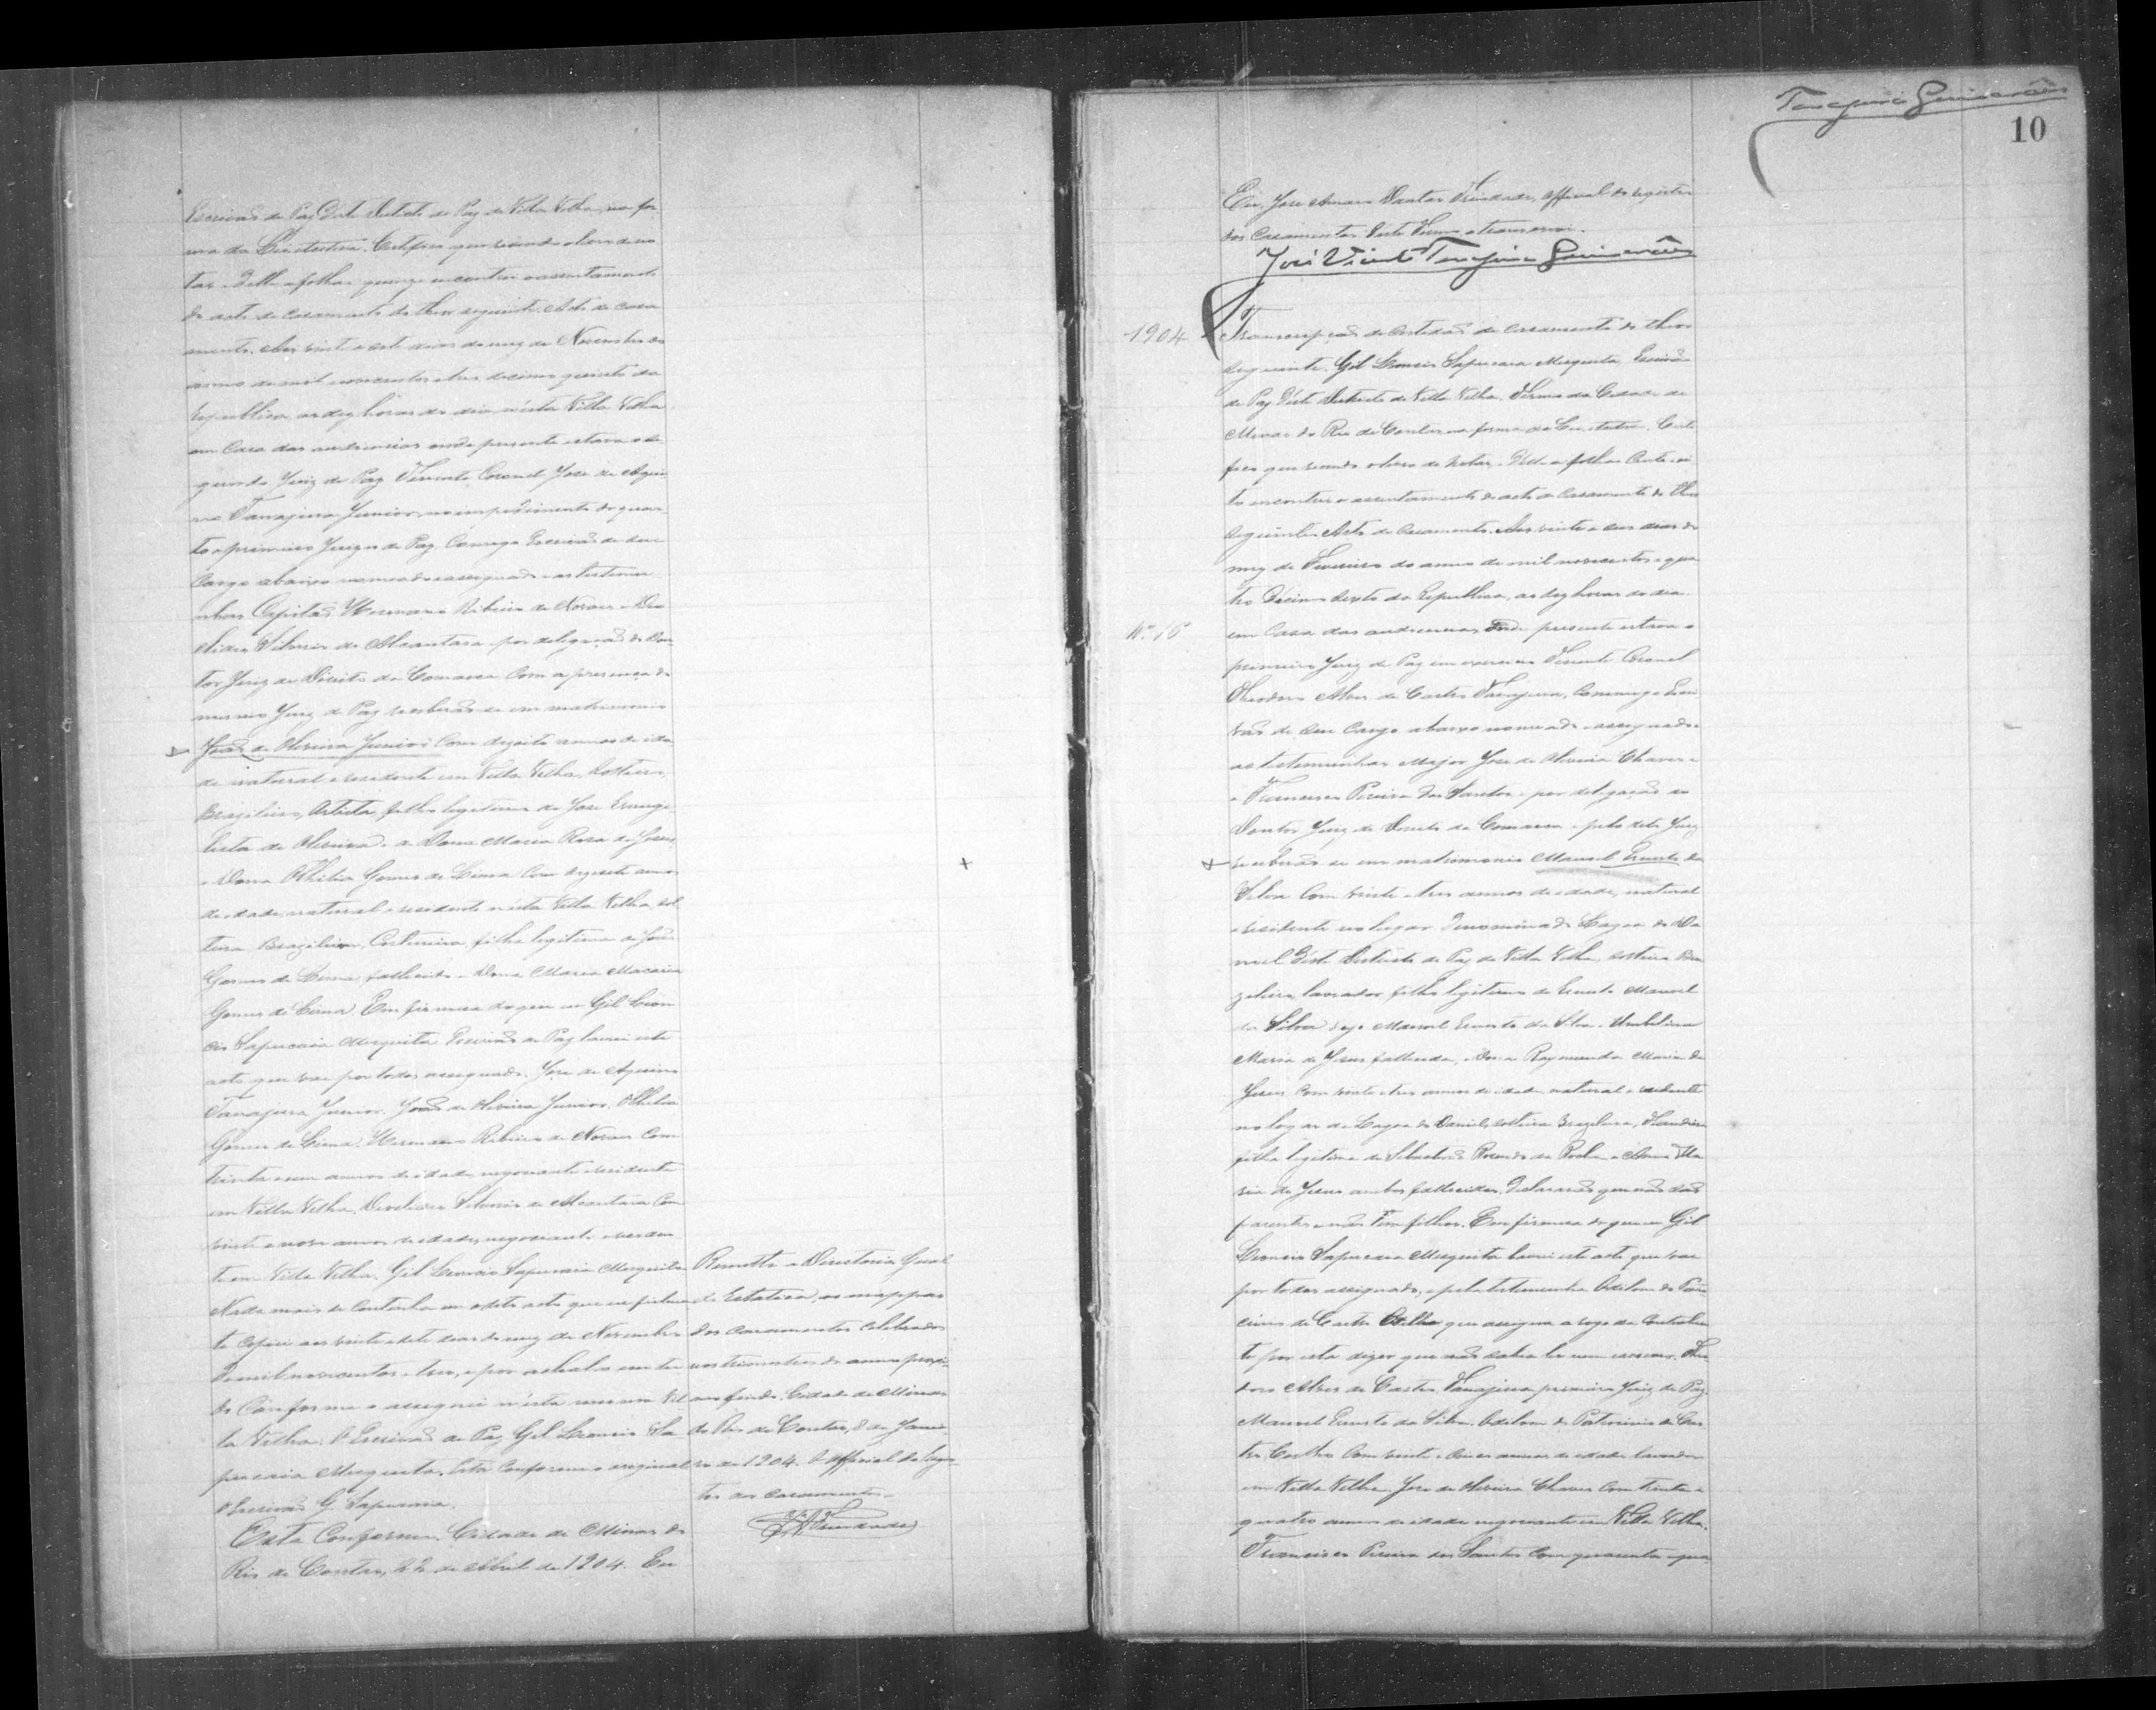 Escrivão de Paz deste Districto de Paz de Villa Velha, na for
ma da Lei etcetera. Certifico que revendo o livro de no
tas delle a folhas quinze encontrei o assentamento
do acto de casamento do theor seguinte. Acto de casa
mento. Aos vinte e sete dias do mez de Novembro do
anno de mil novecentos e tres, decimo quinto da
Republica, as dez horas do dia, n'esta Villa Velha
em Casa das audiencias onde presente estava o se
gundo Juiz de Paz Tenente Coronel José de Aqui
no Tanajura Junior, no impedimento do quar
to e primeiro Juizes de Paz, Comigo Escrivão de seu
Cargo abaixo nomeado e assignado e as testemu
nhas Capitão Hermano Ribeiro de Novaes e Deo
clidio Silverio de Alcantara por delegação do Dou
tor Juiz de Direito da Comarca Com a presença do
mesmo Juiz de Paz receberão-se em matrimonio
João de Oliveira Junior Com dezoito annos de ida
de natural e residente em Villa Velha, Solteiro,
Brazileiro, Artista, filho legitimo de José Evange
lista de Oliveira e de Dona Maria Rosa de Jesus,
e Dona Othilia Gomes de Lima Com dezesete annos
de idade, natural e residente n'esta Villa Velha, sol
teira Brazileira, Costureira, filha legitima de João
Gomes de Lima fallecido e Dona Maria Macaria
Gomes de Lima. Em firmeza do que eu Gil Leon
cio Sapucaia Mesquita Escrivão de Paz lavrei este
acto que vae por todos assignado. José de Aquino
Tanajura Junior. João de Oliveira Junior. Othilia
Gomes de Lima. Hermano Ribeiro de Novaes Com
trinta e um annos de idade, negociante e residente
em Villa Velha. Silverio de Alcantara Com
vinte e nove annos de idade, negociante e residen
te em Villa Velha. Gil Leoncio Sapucaia Mesquita
Nada mais se Continha em o dito acto que eu fielmen
te Copiei aos vinte e sete dias do mez de Novembro
de mil novecentos e tres, e por achal-o em tu
do Conforme o assignei n'esta mesma Vil
la Velha. O Escrivão de Paz Gil Leoncio Sa
pucaia Mesquita. Está Conforme o original
O Escrivão G. Sapucaia.
Está Conforme. Cidade de Minas do
Rio de Contas, 22 de Abril de 1904. Eu
Remetti a Directoria Geral
de Estatica, os mappas
dos casamentos celebrados
nos trimestres do anno proxi
mo findo. Cidade de Minas
do Rio de Contas, 8 de Janei
ro de 1904. O Official do Regis
tro dos casamentos.
Trindade
Tanajura Guimarães
10
Eu, José Amaro Dantas Trindade, Official do registro
dos Casamentos deste Termo, o transcrevi.
José Vicente Tanajura Guimarães
1904
Transcripção da Certidão de Casamento do theor
Seguinte. Gil Leoncio Sapucaia Mesquita, Escrivão
de Paz d'este Districto de Villa Velha, Termo da Cidade de
Minas do Rio de Contas na forma da Lei etcetera. Certi
fico que revendo o livro de notas delle a folhas
encontrei o assentamento do acto de Casamento do theor
Seguinte. Acto de Casamento. Aos vinte e dias do
mez de Fevereiro do anno de mil novecentos e qua
tro Decimo Sexto da Republica, as dez horas do dia
Nº 16
em Casa das audiencias onde presente estava o
primeiro Juiz de Paz em exercicio Tenente Coronel
Theodoro Alves de Castro Tanajura, Commigo Escri
vão de seu Cargo abaixo nomeado e assignado e
as testemunhas Major José de Oliveira Chaves e
e Francisco Pereira dos Santos e por delegação do
Doutor Juiz de Direito da Comarca e pelo dito Juiz
receberão se em matrimonio Manoel Ernesto da
Silva Com vinte e tres annos de idade, natural
e residente no lugar denominado Lagoa do Da
niel d'este Districto de Paz de Villa Velha, solteiro Bra
zileiro, lavrador filho legitimo de Ernesto Manoel
da Silva digo Manoel Ernesto da Silva e Umbelina
Maria de Jesus fallecida, e Dona Raymunda Maria de
Jesus Com vinte e tres annos de idade natural e residente
no lugar da Lagoa do Daniel, solteira Brazileira, Fiandeira
filha legitima de Sebastião Rosendo da Rocha e Anna Ma
ria de Jesus ambos fallecidos. Declararão que não são
parentes e não tem filhos. Em firmeza do que eu Gil
Leoncio Sapucaia Mesquita lavrei este acto que vae
por todos assignado, e pela testemunha Odilon do Patro
cinio de Castro que assigna a rogo da Contrahen
te por esta dizer que não sabia ler nem escrever. Theo
doro Alves de Castro Tanajura primeiro Juiz de Paz.
Manoel Ernesto da Silva. Odilon do Patrocinio de Cas
tro Com vinte e annos de idade lavrador
em Villa Velha. José de Oliveira Chaves Com trinta e
quatro annos de idade negociante em Villa Velha.
Francisco Pereira dos Santos Com quarenta e qua